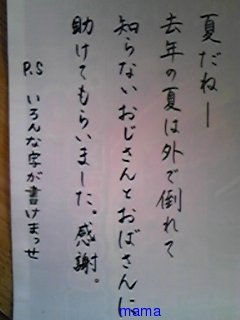 夏だねー
去年の夏は外で倒れて
知らないおじさんとおばさんに
助けてもらいました。感謝。
P.S いろんな字が書けまっせ
mama